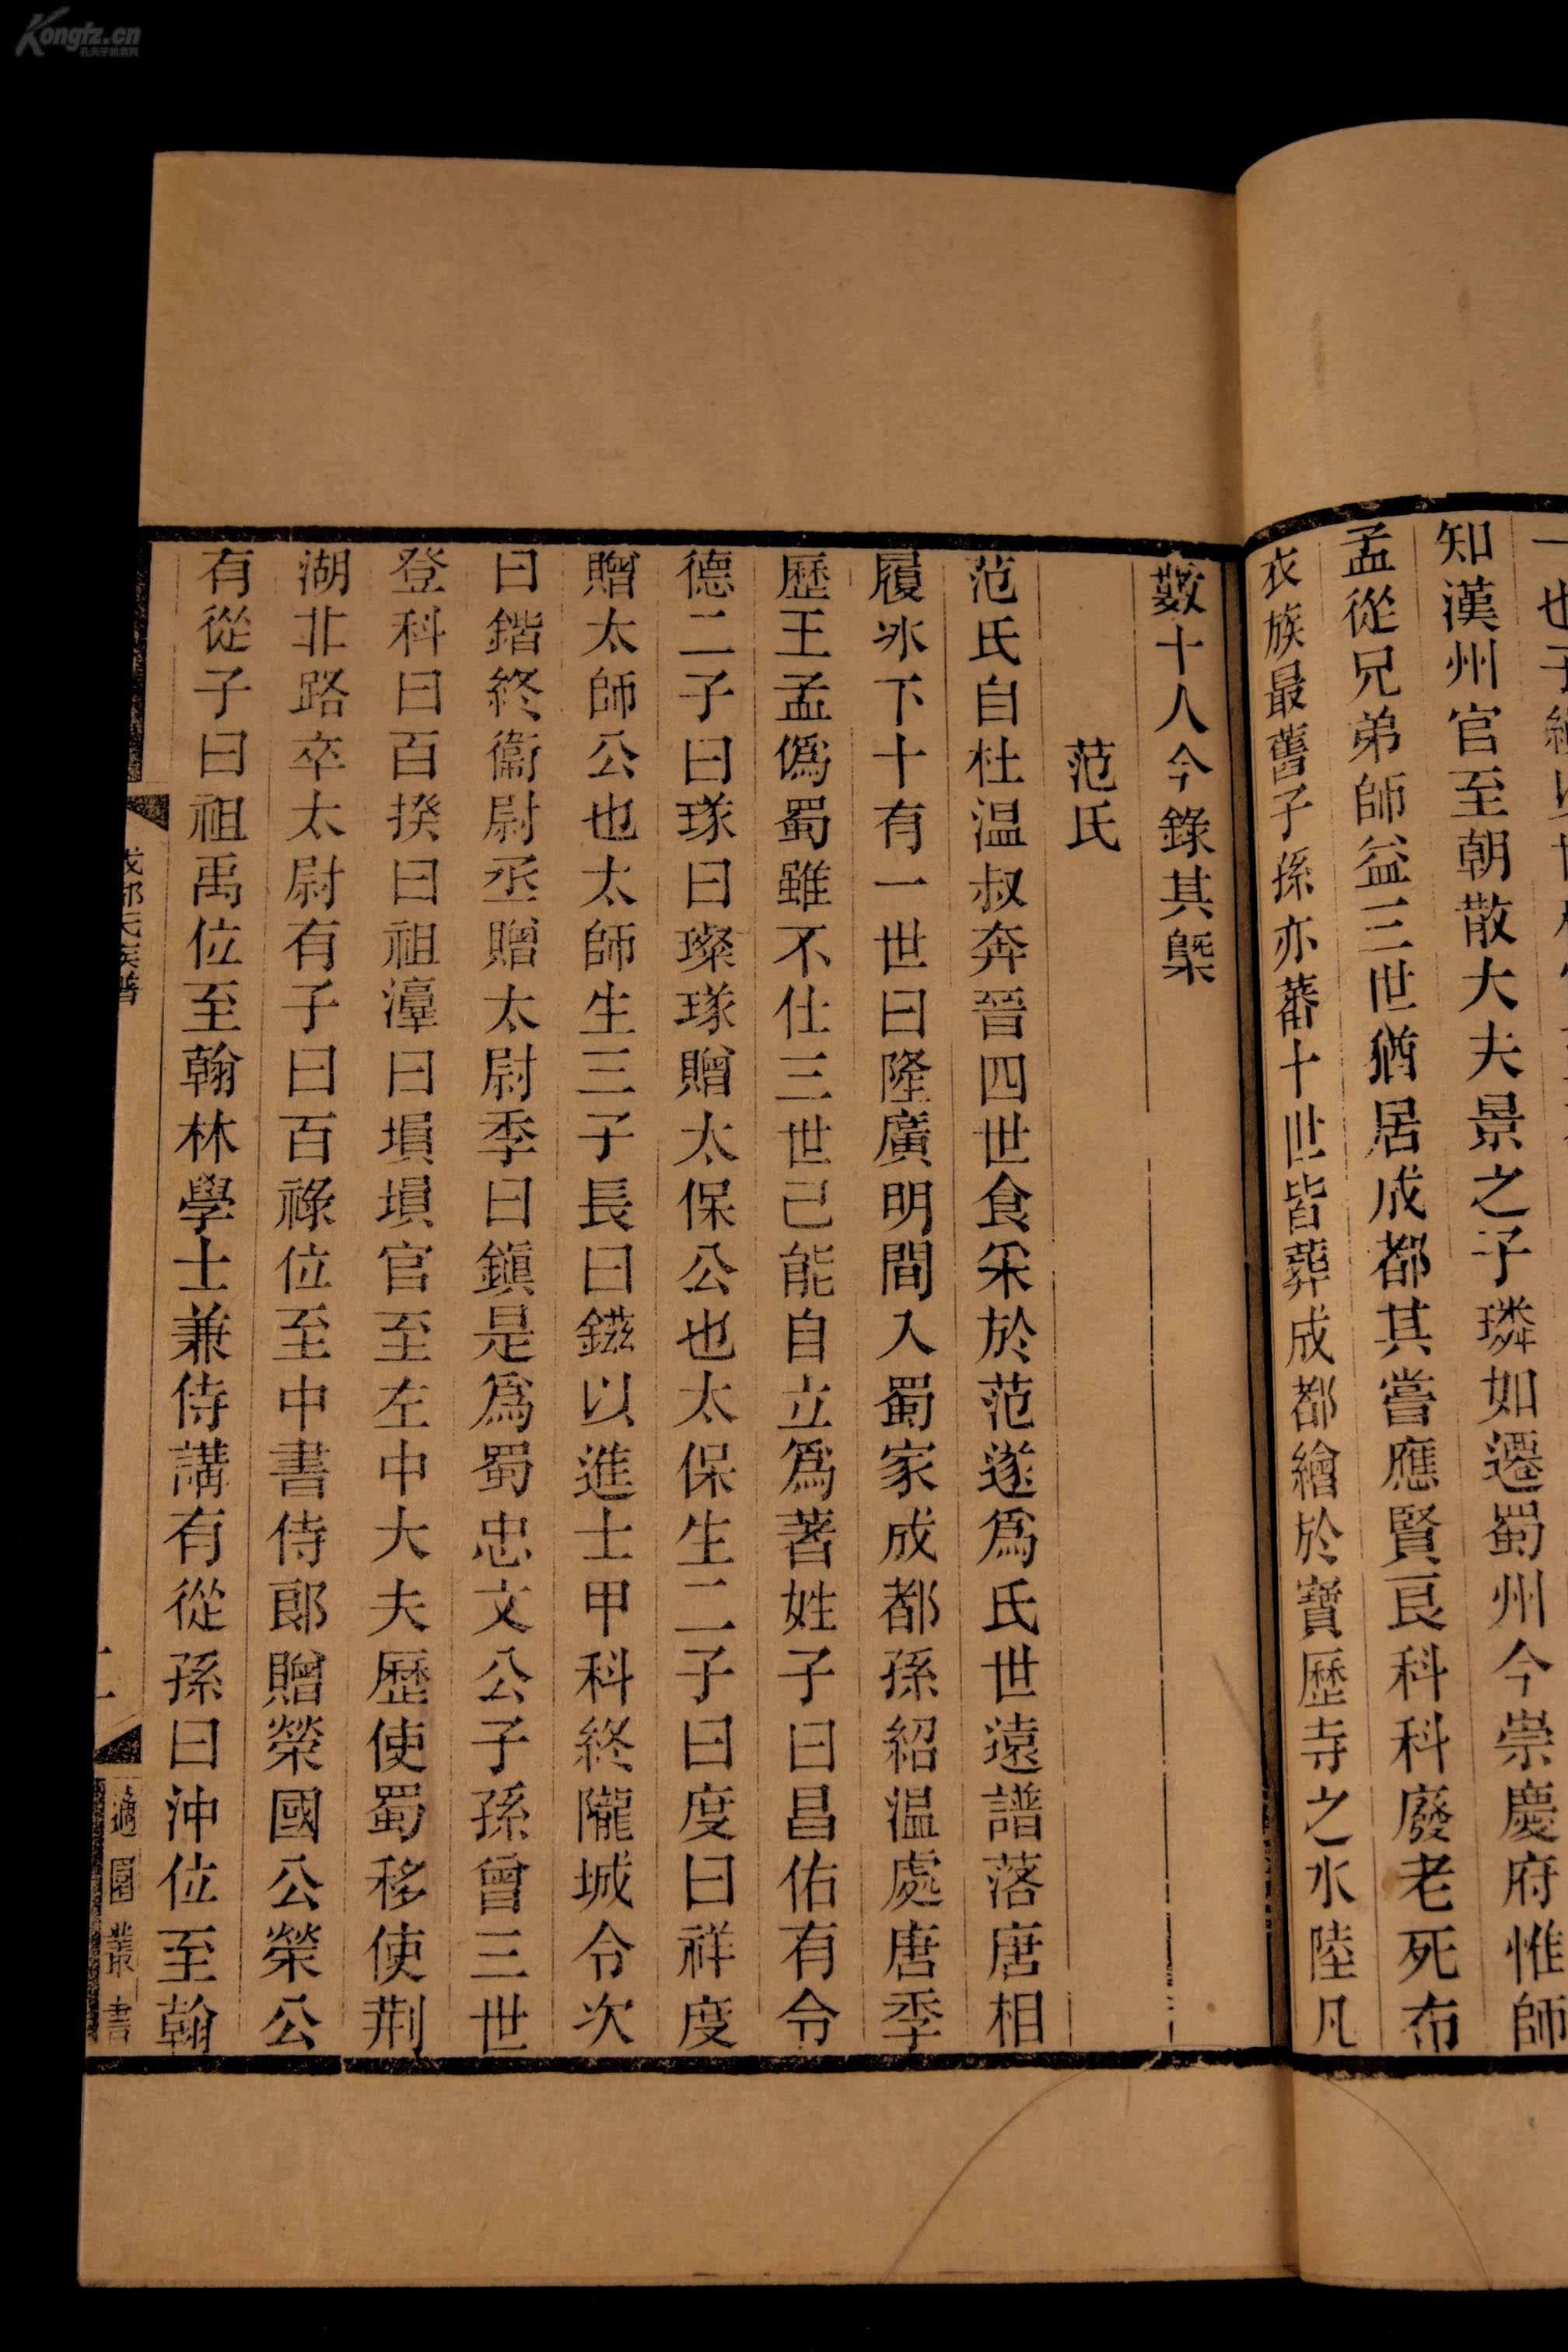 Kongfz.cn
孔夫子拍卖网
知漢州官至朝散大夫景之子璘如遷蜀州今崇慶府惟師
孟從兄弟師益三世猶居成都其嘗應賢良科科廢老死布
衣族最舊子孫亦蕃十世皆葬成都繪於寶歷寺之水陸凡
數十人今錄其槩
范氏
范氏自杜温叔奔晉四世食采於范遂爲氏世遠譜落唐相
履冰下十有一世曰隆廣明間入蜀家成都孫紹温處唐季
歷王孟僞蜀雖不仕三世己能自立爲著姓子曰昌佑有令
德二子曰璲曰璨璲贈太保公也太保生二子曰度曰祥度
贈太師公也太師生三子長曰鎡以進士甲科終隴城令次
曰鍇終衞尉丞贈太尉季曰鎭是爲蜀忠文公子孫曾三世
登科曰百揆曰祖㵶曰塤塤官至左中大夫歷使蜀移使荆
湖北路卒太尉有子曰百祿位至中書侍郎贈榮國公榮公
有從子曰祖禹位至翰林學士兼侍講有從孫曰沖位至翰
成都氏族譜
二
適園叢書